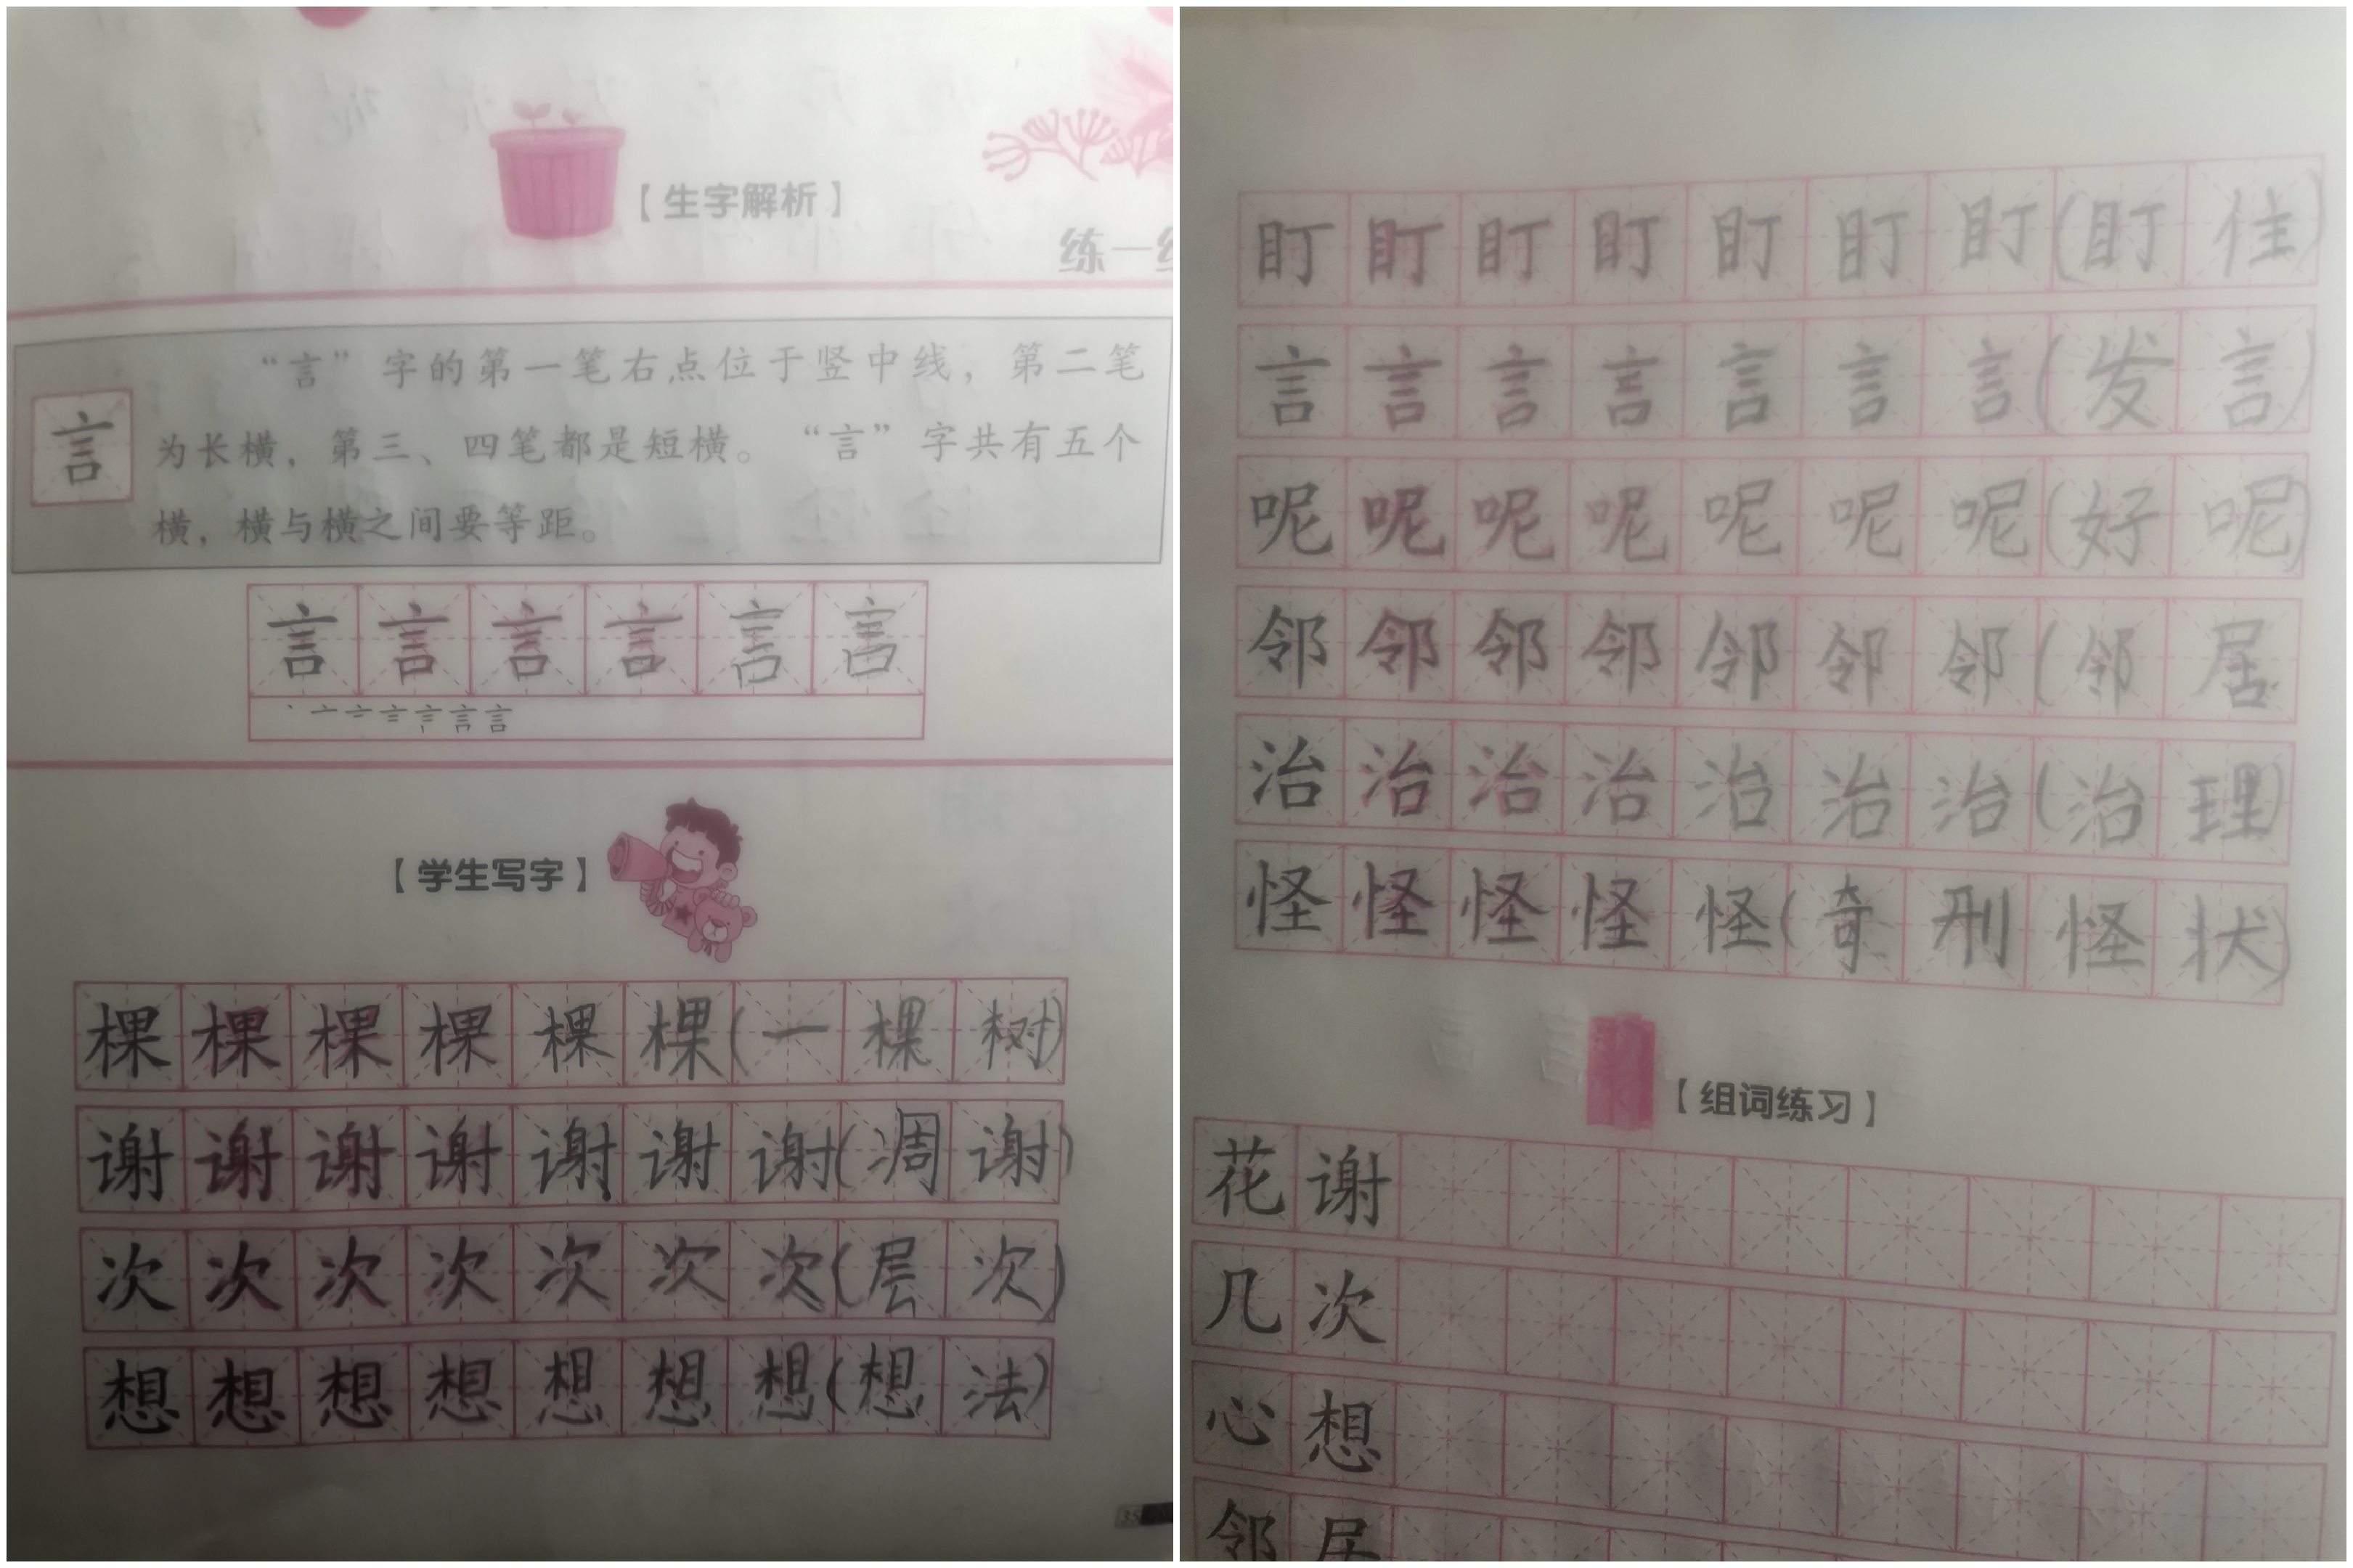 【生字解析】
练一
言
“言”字的第一笔右点位于竖中线，第二笔
为长横，第三、四笔都是短横。“言”字共有五个
横，横与横之间要等距。
言言言言言言
【学生写字】
棵棵棵棵棵棵(一棵树)
谢谢谢谢谢谢谢(凋谢)
次次次次次次次(层次)
想想想想想想想(想法)
35
盯盯盯盯盯盯盯(盯住)
言言言言言言言(发言)
呢呢呢呢呢呢呢(好呢)
邻邻邻邻邻邻邻(邻居
治治治治治治治(治理)
怪怪怪怪怪(奇刑怪状)
【组词练习】
花谢
几次
心想
邻居